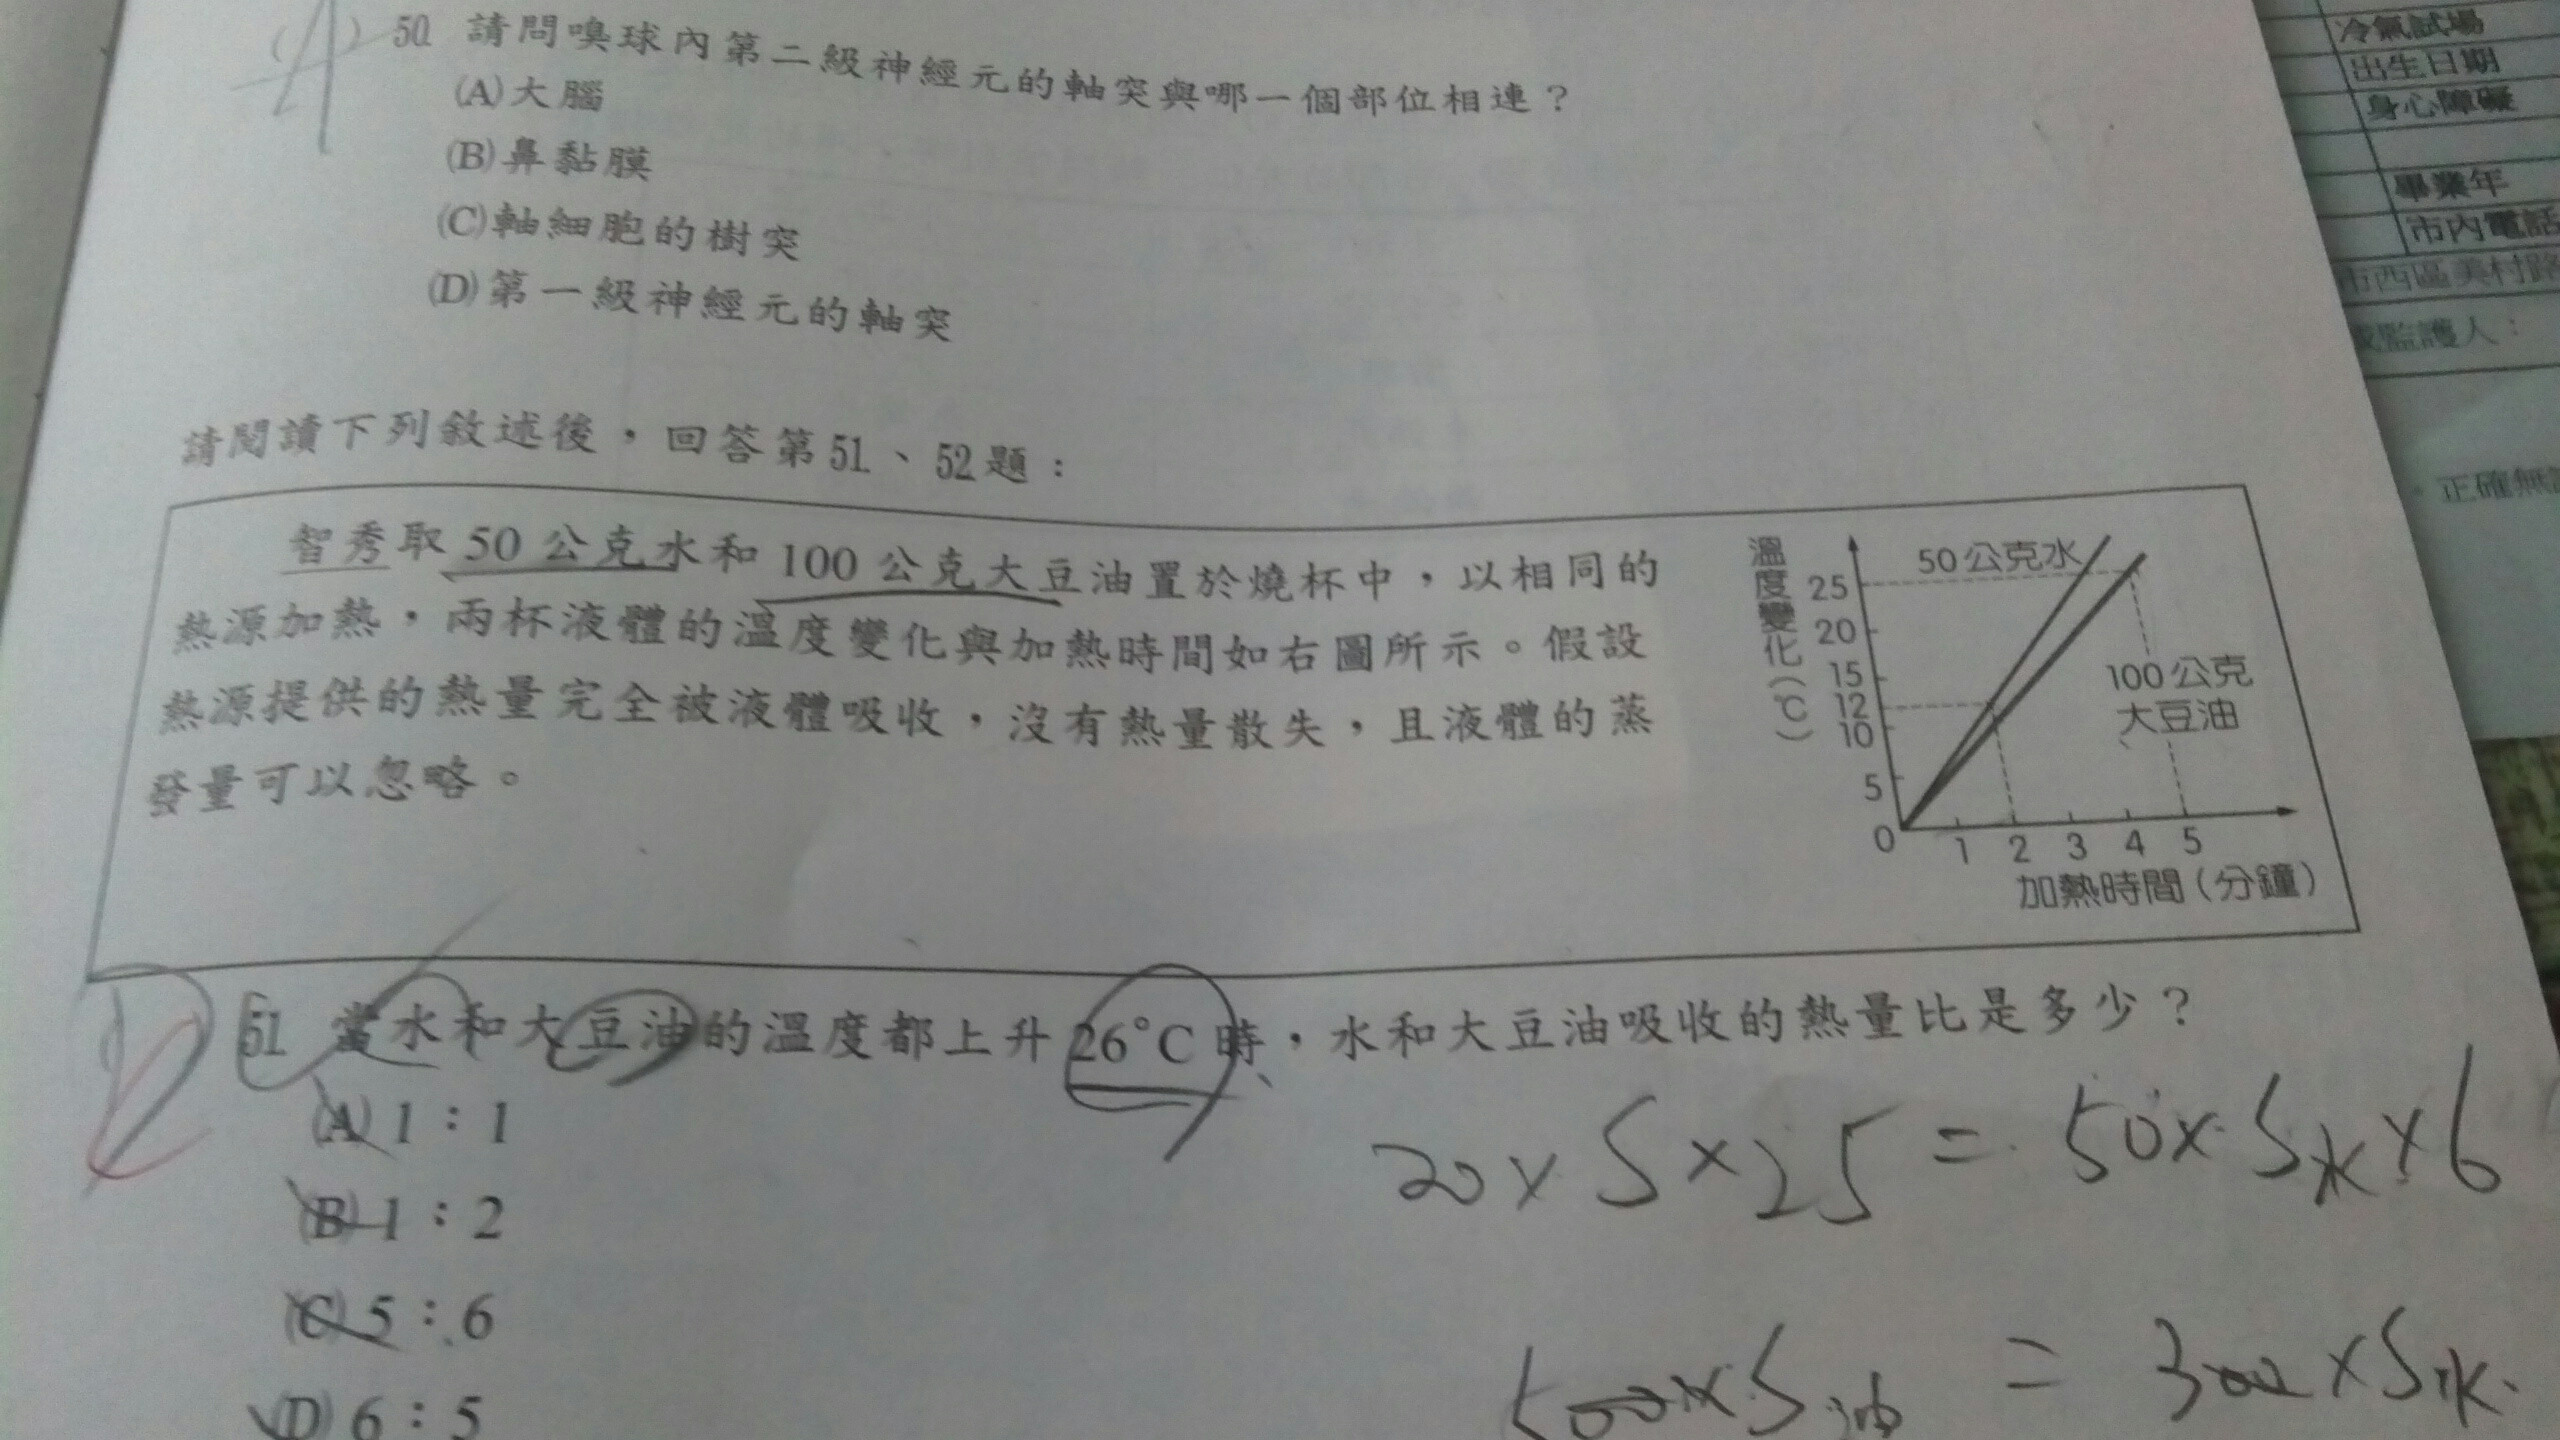 50. 請問嗅球內第二級神經元的軸突與哪一個部位相連？
(A)大腦
(B)鼻黏膜
(C)軸細胞的樹突
(D)第一級神經元的軸突
請閱讀下列敘述後，回答第51、52題：
智秀取 50 公克水和 100 公克大豆油置於燒杯中，以相同的
熱源加熱，兩杯液體的溫度變化與加熱時間如右圖所示。假設
熱源提供的熱量完全被液體吸收，沒有熱量散失，且液體的蒸
發量可以忽略。
溫度變化(℃)
25
20
15
12
10
5
0
1 2 3 4 5
加熱時間(分鐘)
50公克水
100公克
大豆油
51. 當水和大豆油的溫度都上升 26°C 時，水和大豆油吸收的熱量比是多少？
(A) 1：1
(B) 1：2
(C) 5：6
(D) 6：5
20×S×25=50×S水×6
500×S油 = 300×S水
冷氣試場
出生日期
身心障礙
畢業年
市內電話
市西區美村路
監護人：
正確無